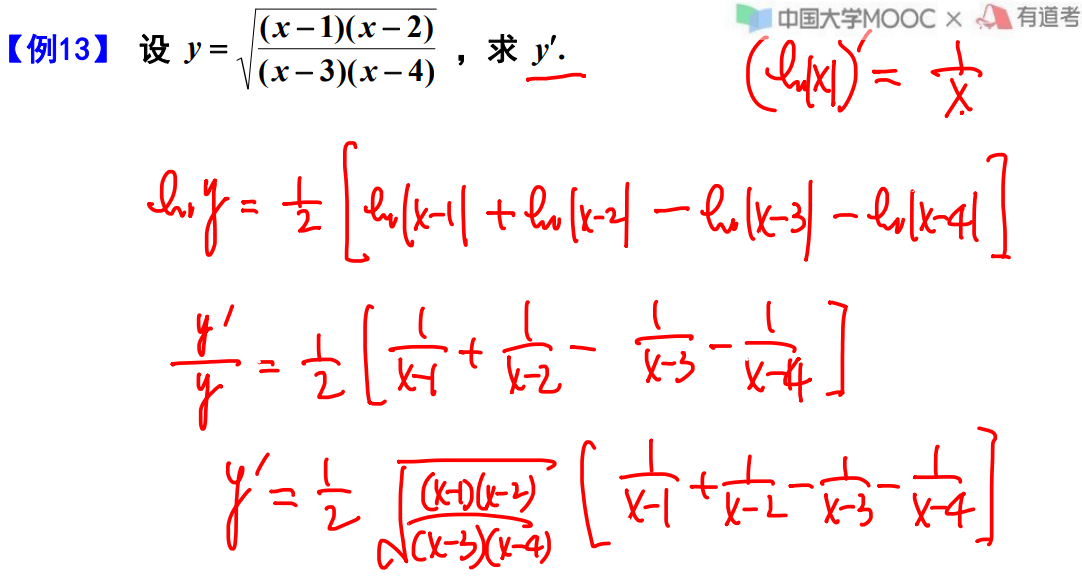 中国大学MOOC × 有道考
【例13】 设 y = √((x−1)(x−2)/((x−3)(x−4))) ，求 y′.
(ln|x|)′ = 1/x
ln y = 1/2 [ln|x-1| + ln|x-2| − ln|x-3| − ln|x-4|]
y′/y = 1/2 [1/(x-1) + 1/(x-2) − 1/(x-3) − 1/(x-4)]
y′ = 1/2 √((x-1)(x-2)/((x-3)(x-4))) [1/(x-1) + 1/(x-2) − 1/(x-3) − 1/(x-4)]